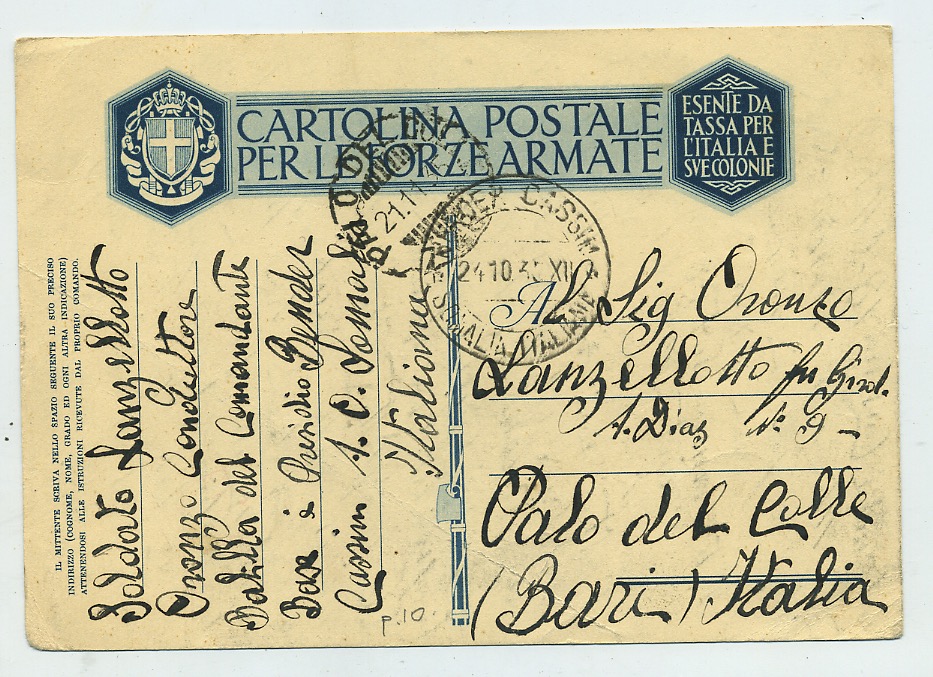 CARTOLINA POSTALE
PER LE FORZE ARMATE
ESENTE DA
TASSA PER
L'ITALIA E
SVE COLONIE
PALO DEL
21.11
BENDER CASSIM
24.10.35 XII
SOMALIA ITALIANA
IL MITTENTE SCRIVA NELLO SPAZIO SEGUENTE IL SUO PRECISO
INDIRIZZO (COGNOME, NOME, GRADO ED OGNI ALTRA INDICAZIONE)
ATTENENDOSI ALLE ISTRUZIONI RICEVUTE DAL PROPRIO COMANDO.
Soldato Lanzellotto
Oronzo Conduttore
Balilla del Comandante
Base è Presidio Bender
Cassim A. O. Somalia
Italiana
Al Sig Oronzo
Lanzellotto fu Girol.
A. Diaz N. 9 -
Palo del Colle
(Bari) Italia
p.10